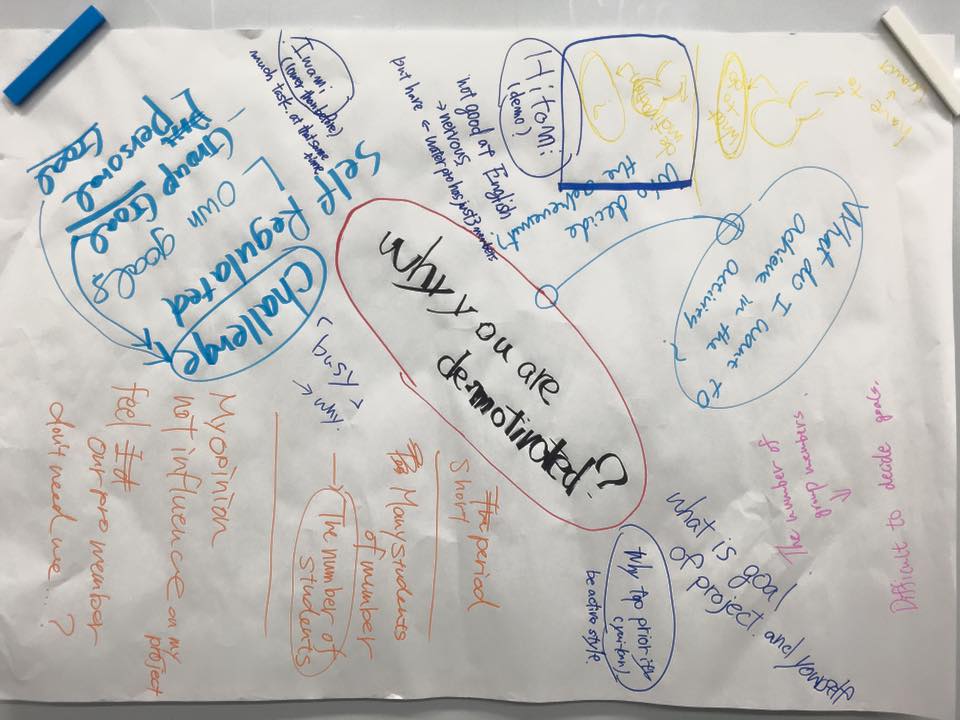 why you are
demotivated?
What do I want to
achieve in the
activity?
Who decide
the achievement?
have to
do to want
Hitomi
(demo?)
not good at English
→ nervous
but have ←
Iwami
(lower than before)
much task. at the same
time
Self
Regulated
Challenge
own
goals
Group Goal
personal
Goal
< busy >
< why.
period
short
Many students
of number
→ The number of
students
My opinion
not influence on my
project
feel
our pro member
don't need me?
what is goal
of project. and yourself
Why top priority
be active style.
The number of
group members.
Difficult to decide goals.